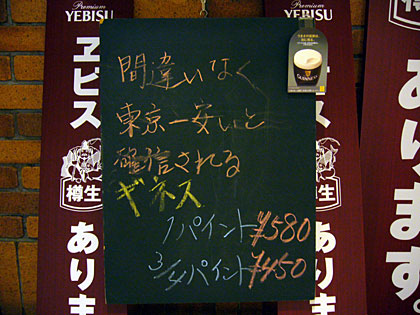 Premium
YEBISU
ヱビス
樽生
ありま
間違いなく
東京一安いと
確信される
ギネス
1パイント ¥580
3/4パイント ¥450
GUINNESS
Premium
YEBISU
樽生
ありま
あります。